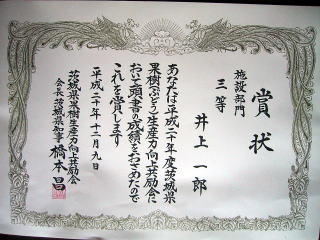 賞状
施設部門
三等
井上一郎
あなたは平成二十年度茨城県
果樹ぶどう生産力向上共励会に
おいて頭書の成績をおさめたので
これを賞します
平成二十年十二月九日
茨城県果樹生産力向上共励会
会長茨城県知事 橋本昌